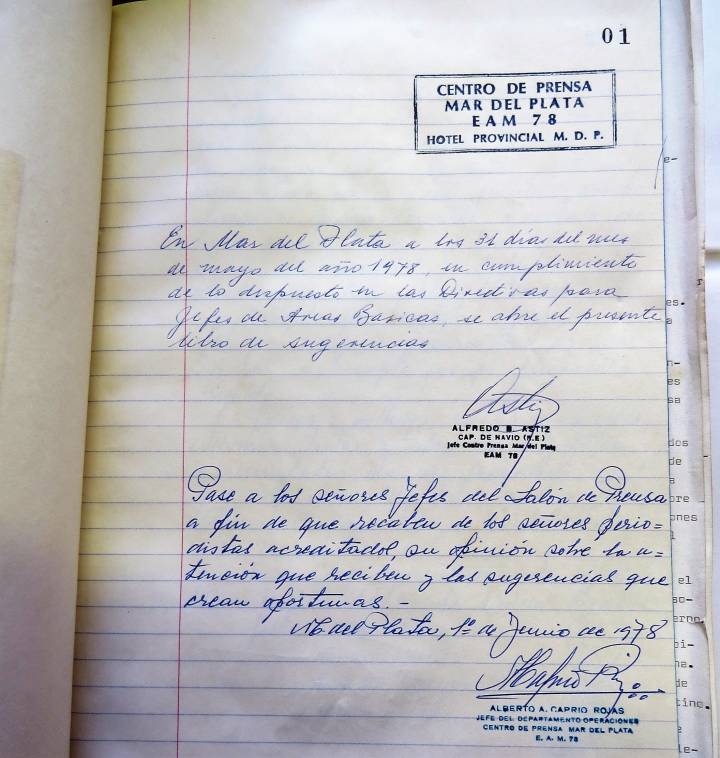 01
CENTRO DE PRENSA
MAR DEL PLATA
EAM 78
HOTEL PROVINCIAL M. D. P.
En Mar del Plata a los 31 días del mes
de mayo del año 1978, en cumplimiento
de lo dispuesto en las Directivas para
Jefes de Areas Basicas, se abre el presente
libro de sugerencias
Astiz
ALFREDO B. ASTIZ
CAP. DE NAVIO (R.E.)
Jefe Centro Prensa Mar del Plata
EAM 78
Pase a los señores Jefes del Salón de Prensa
a fin de que recaben de los señores perio=
distas acreditados, su opinión sobre la a=
tención que reciben y las sugerencias que
crean oportunas.-
M. del Plata, 1º de Junio de 1978
ALBERTO A. CAPRIO ROJAS
JEFE DEL DEPARTAMENTO OPERACIONES
CENTRO DE PRENSA MAR DEL PLATA
E. A. M. 78